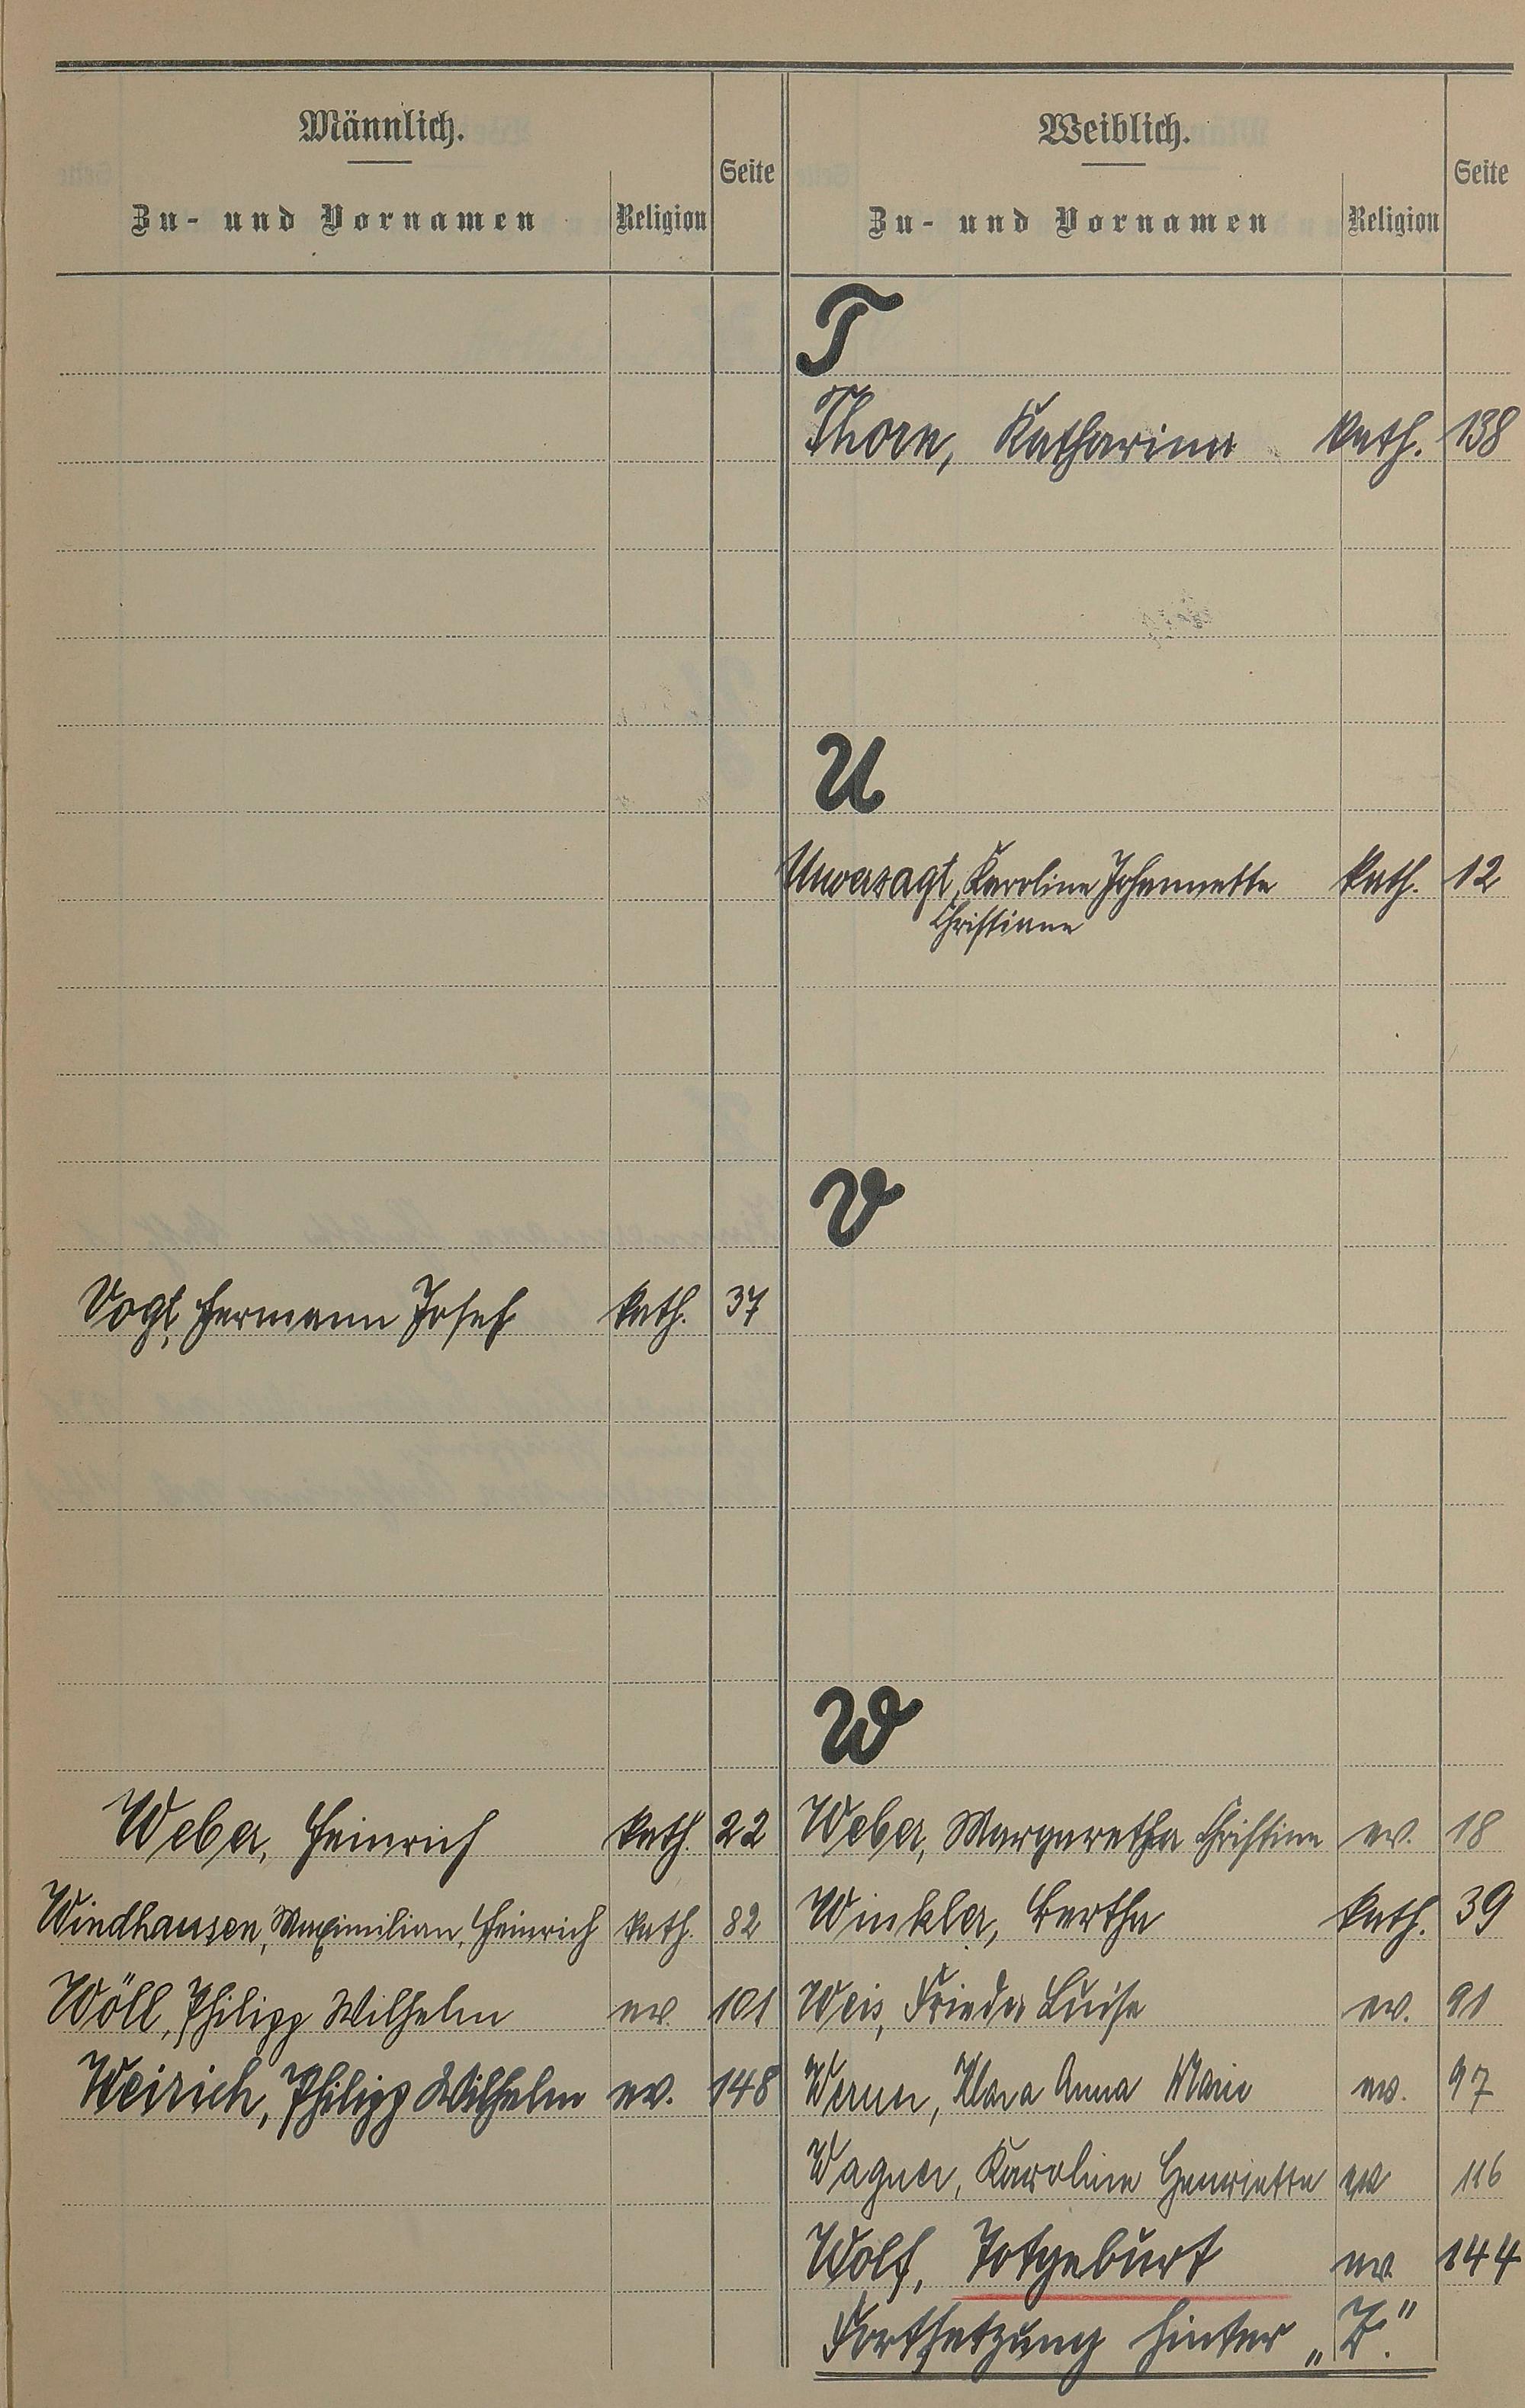 Männlich.
Zu- und Vornamen Religion Seite
Weiblich.
Zu- und Vornamen Religion Seite
T
Thorn, Katharina kath. 138
U
Unversagt, Karoline Johannette kath. 12
Christiane
V
Vogt, Hermann Josef kath. 37
W
Weber, Heinrich kath. 22
Windhausen, Maximilian, Heinrich kath. 82
Wöll, Philipp Wilhelm ev. 101
Weirich, Philipp Wilhelm ev. 148
Weber, Margaretha Christine ev. 18
Winkler, Bertha kath. 39
Weis, Frieda Luise ev. 91
Werner, Klara Anna Marie ev. 97
Wagner, Karoline Henriette ev 116
Wolf, Totgeburt ev. 144
Fortsetzung hinter „Z."